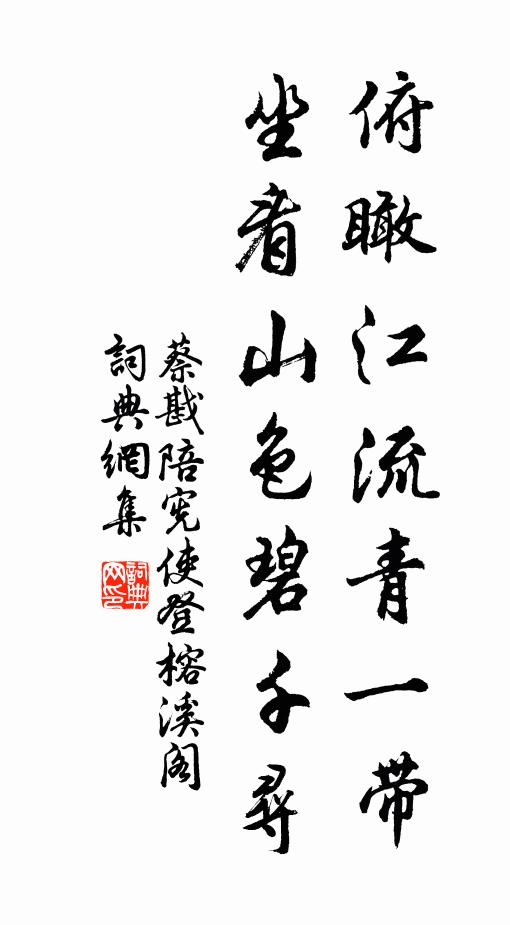 俯瞰江流青一帶
坐看山色碧千尋
蔡戡陪宪使登榕溪阁
詞典網集
詞典网印